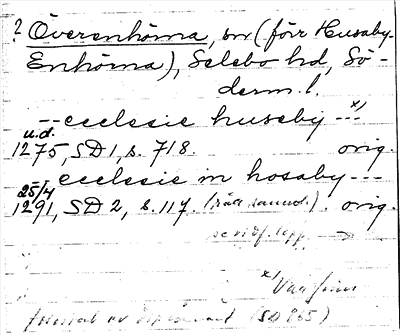 ? Överenhörna, sn (förr Husaby-
Enhörna), Selebo hd, Sö-
derm. l.
--ecclesie huseby --- x/
u.d.
1275, SD 1, s. 718. orig.
-- ecclesie in hosaby ---
25/4
1291, SD 2, s. 117. orig.
se vidf. lapp
x/ Var finns
(SD 865)